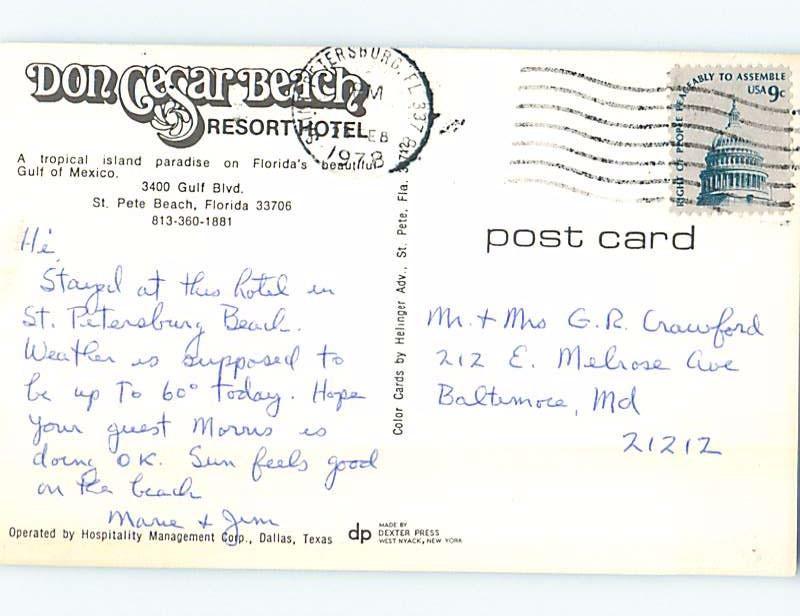 Don CeSar Beach
RESORT HOTEL
A tropical island paradise on Florida's beautiful
Gulf of Mexico.
3400 Gulf Blvd.
St. Pete Beach, Florida 33706
813-360-1881
Hi,
Stayed at this hotel in
St. Petersburg Beach.
Weather is supposed to
be up to 60° today. Hope
your guest Morris is
doing OK. Sun feels good
on the beach
Marie + Jim
Operated by Hospitality Management Corp., Dallas, Texas
dp
MADE BY
DEXTER PRESS
WEST NYACK, NEW YORK
Color Cards by Helinger Adv., St. Pete, Fla. 33712
PETERSBURG, FL 337
PM
FEB
1978
RIGHT OF PEOPLE PEACEABLY TO ASSEMBLE
USA 9c
post card
Mr. + Mrs G. R. Crawford
212 E. Melrose Ave
Baltimore, Md
21212